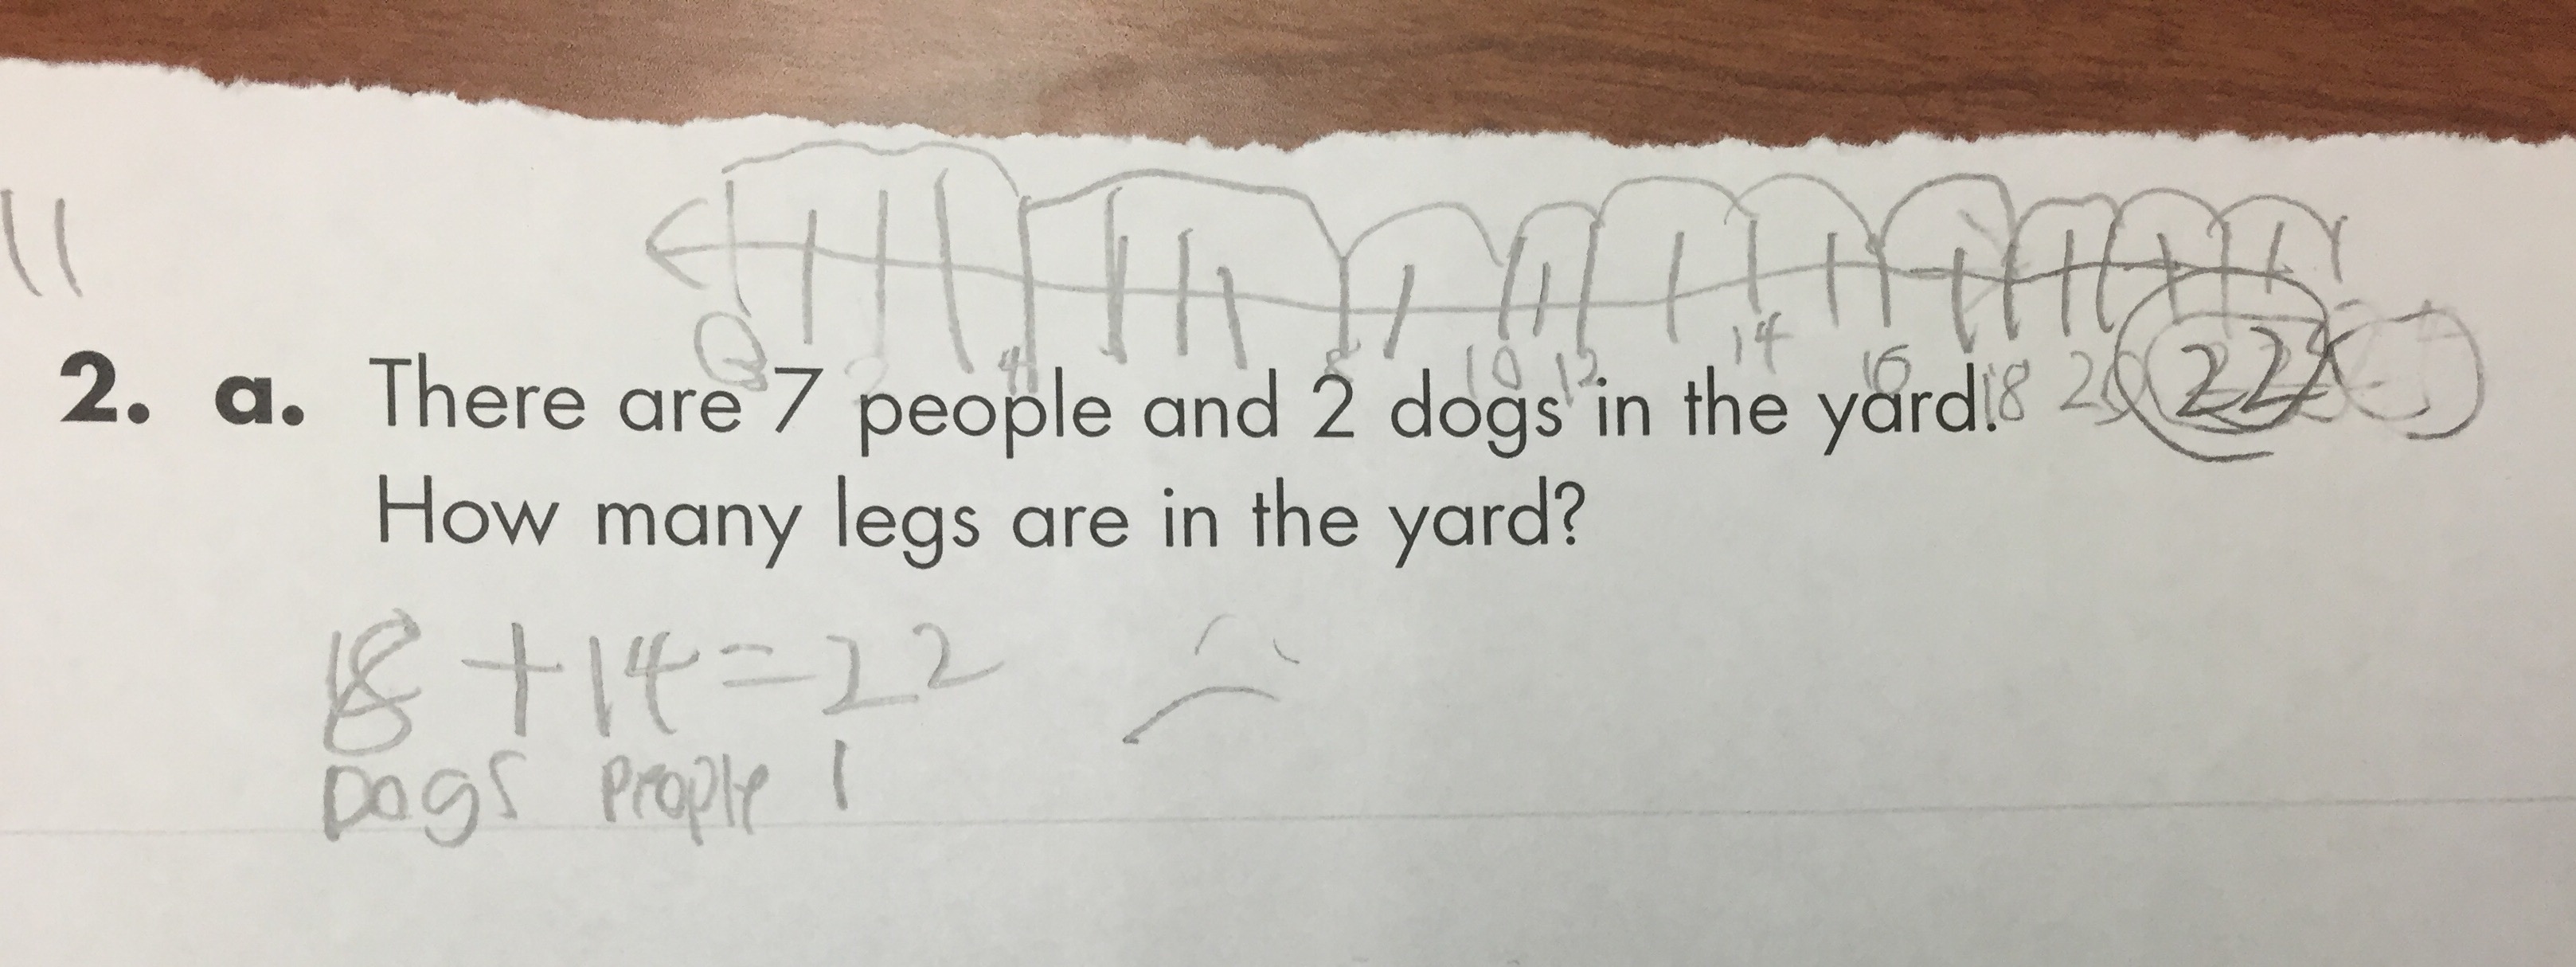 11
0 2 4 8 10 12 14 16 18 20 22
2. a. There are 7 people and 2 dogs in the yard.
How many legs are in the yard?
8 + 14 = 22
Dogs people